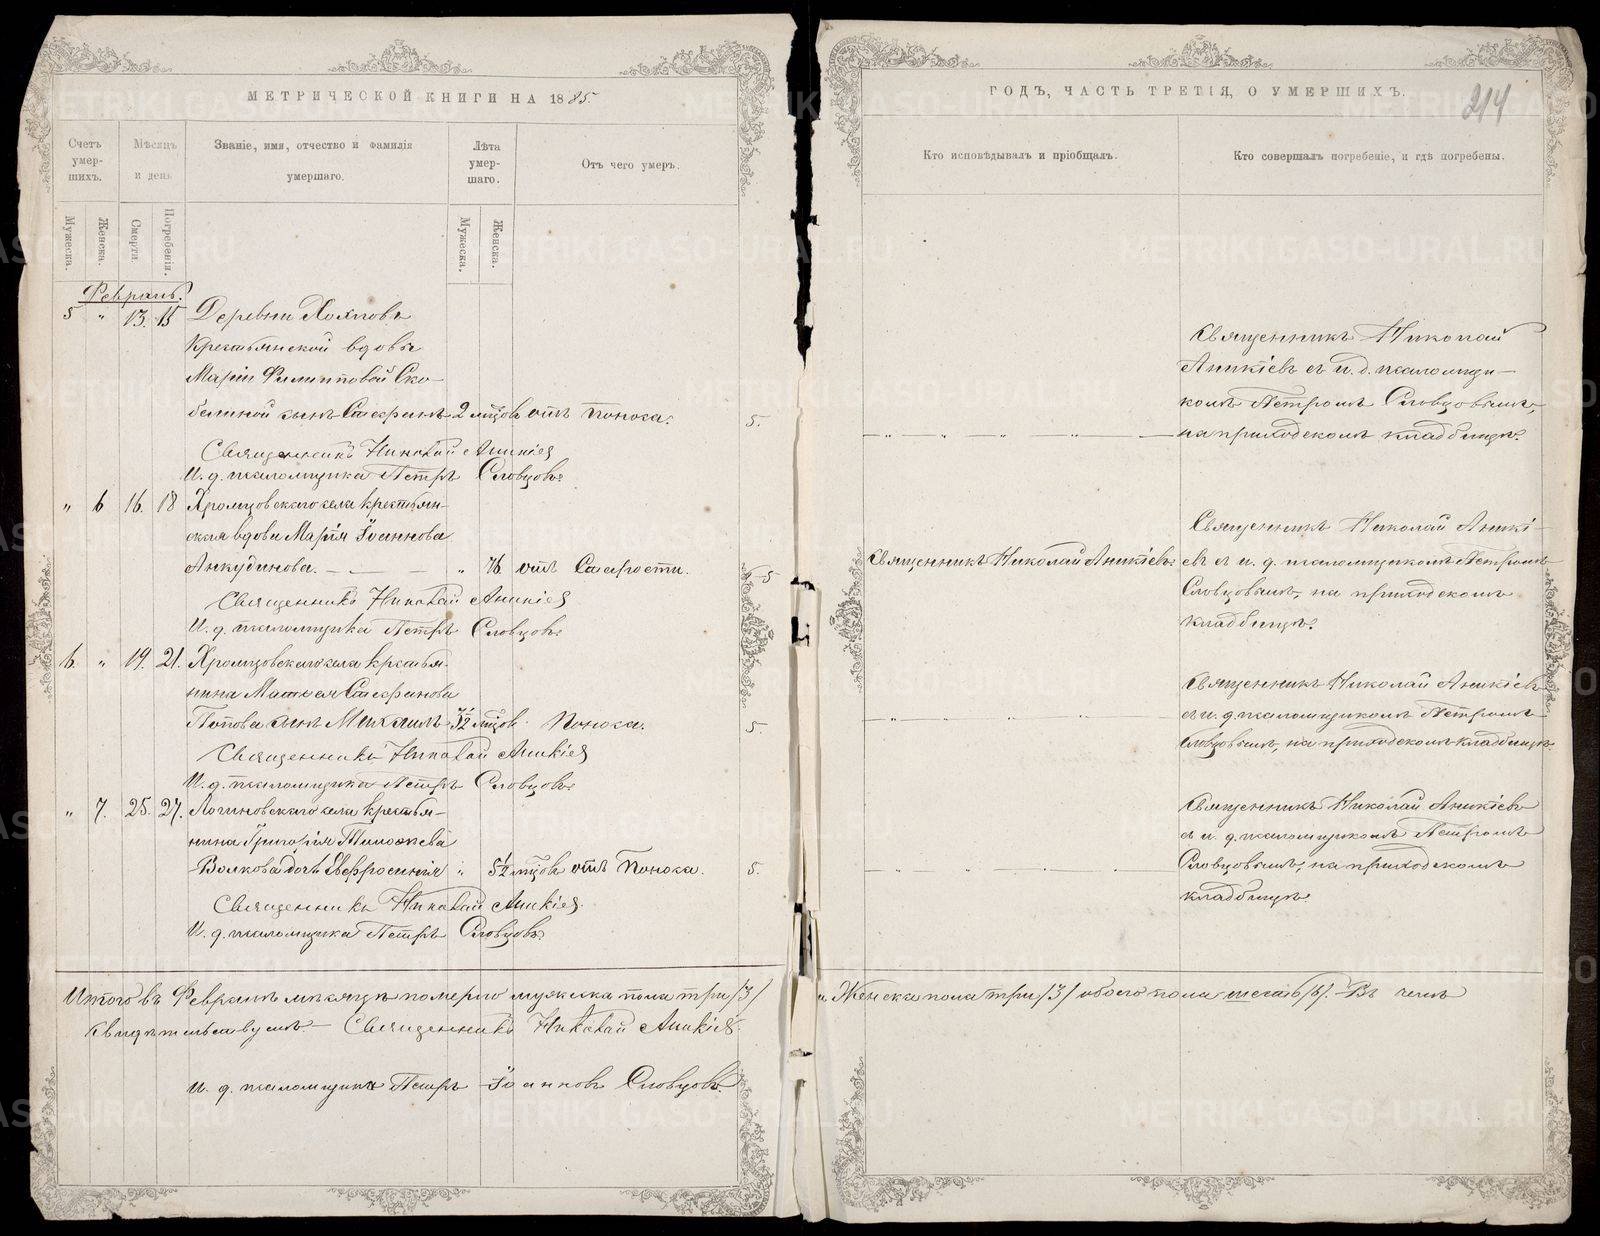 МЕТРИЧЕСКОЙ КНИГИ НА 1885.
Счетъ умер-шихъ.
Мѣсяцъ и день
Званіе, имя, отчество и фамилія умершаго.
Лѣта умер-шаго.
Отъ чего умеръ.
Мужеска.
Женска.
Смерти
Погребенія.
Мужеска.
Женска.
Февраль.
5 " 13. 15 Деревни
Крестьянской вдовы
Маріи Филипповой Ско-
белиной сынъ 2 мѣсцовъ отъ поноса. 5.
Священникъ Николай Аникіев
И. д. псаломщика Петръ Словцовъ
" 6 16. 18 Хромцовскаго села крестьян-
ская вдова Марѳа Іоаннова
Анкудинова. " 76 отъ Старости.
Священникъ Николай Аникіев
И. д. псаломщика Петръ Словцовъ
6. " 19. 21. Хромцовскаго села крестья-
нина
Попова сынъ Михаилъ поноса. 5.
Священникъ Николай Аникіев
И. д. псаломщика Петръ Словцовъ
" 7. 25. 27. Логиновскаго села крестья-
нина Григорія Тимоѳеева
Волкова дочь Евфросинія " 5½ мѣсцовъ отъ Поноса. 5.
Священникъ Николай Аникіев
И. д. псаломщика Петръ Словцовъ
Итого въ Февралѣ мѣсяцѣ померло мужеска пола три /3/
свидѣтельствуемъ – Священникъ Николай Аникіев
И. д. псаломщика Петръ Іоанновъ Словцовъ
ГОДЪ, ЧАСТЬ ТРЕТІЯ, О УМЕРШИХЪ.
214
Кто исповѣдывалъ и пріобщалъ.
Кто совершалъ погребеніе, и гдѣ погребены.
Священникъ Николай
Аникіевъ съ и. д. псаломщи-
комъ Петромъ Словцовымъ,
на приходскомъ кладбищѣ.
Священникъ Николай Аникіевъ.
Священникъ Николай Аникі-
евъ съ и. д. псаломщикомъ Петромъ
Словцовымъ, на приходскомъ
кладбищѣ.
Священникъ Николай Аникіевъ
съ и. д. псаломщикомъ Петромъ
Словцовымъ, на приходскомъ кладбищѣ.
Священникъ Николай Аникіевъ
съ и. д. псаломщикомъ Петромъ
Словцовымъ, на приходскомъ
кладбищѣ.
и Женска пола три /3/ обоего пола шесть /6/. Въ чемъ
METRIKI.GASO-URAL.RU